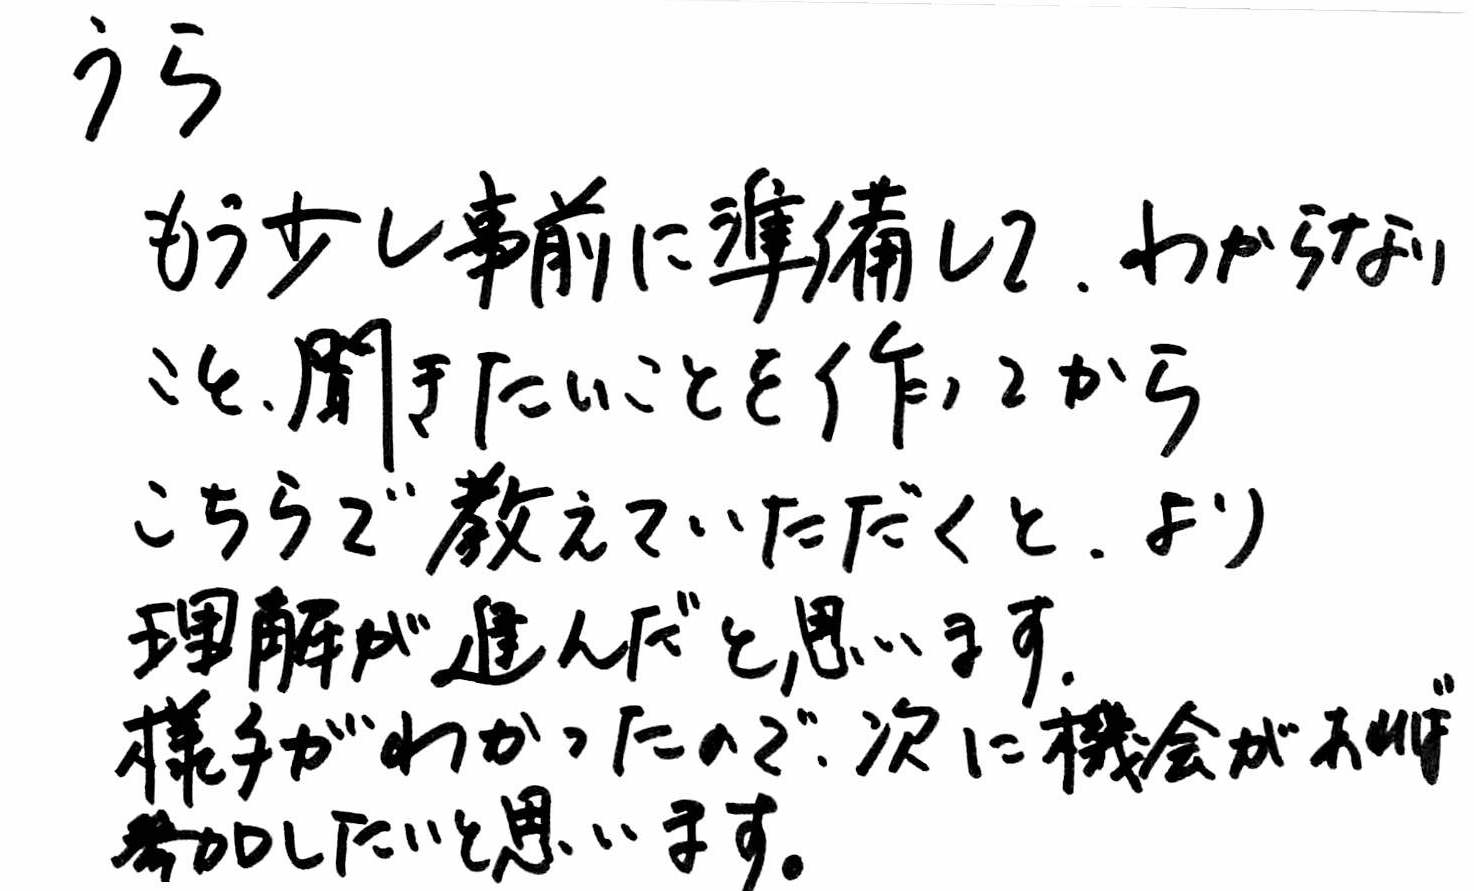 うら
もう少し事前に準備して、わからない
こと、聞きたいことを作ってから
こちらで教えていただくと、より
理解が進んだと思います。
様子がわかったので、次に機会があれば
参加したいと思います。